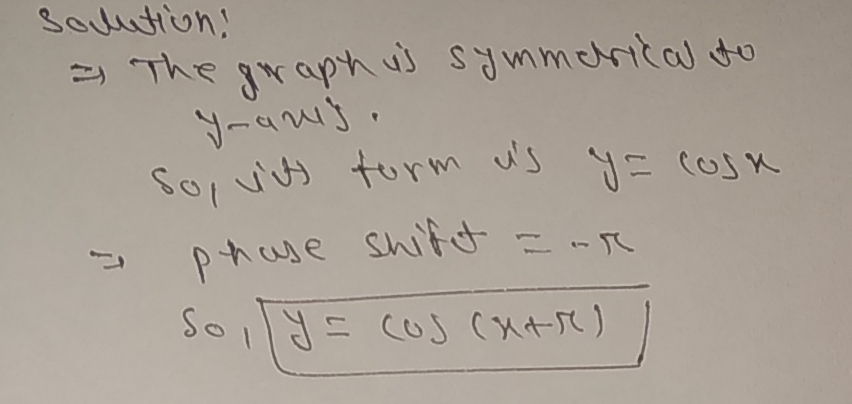 Solution:
⇒ The graph is symmetrical to
y-axis.
So, its form is y = cosx
⇒ phase shift = -π
So, y = cos (x+π)